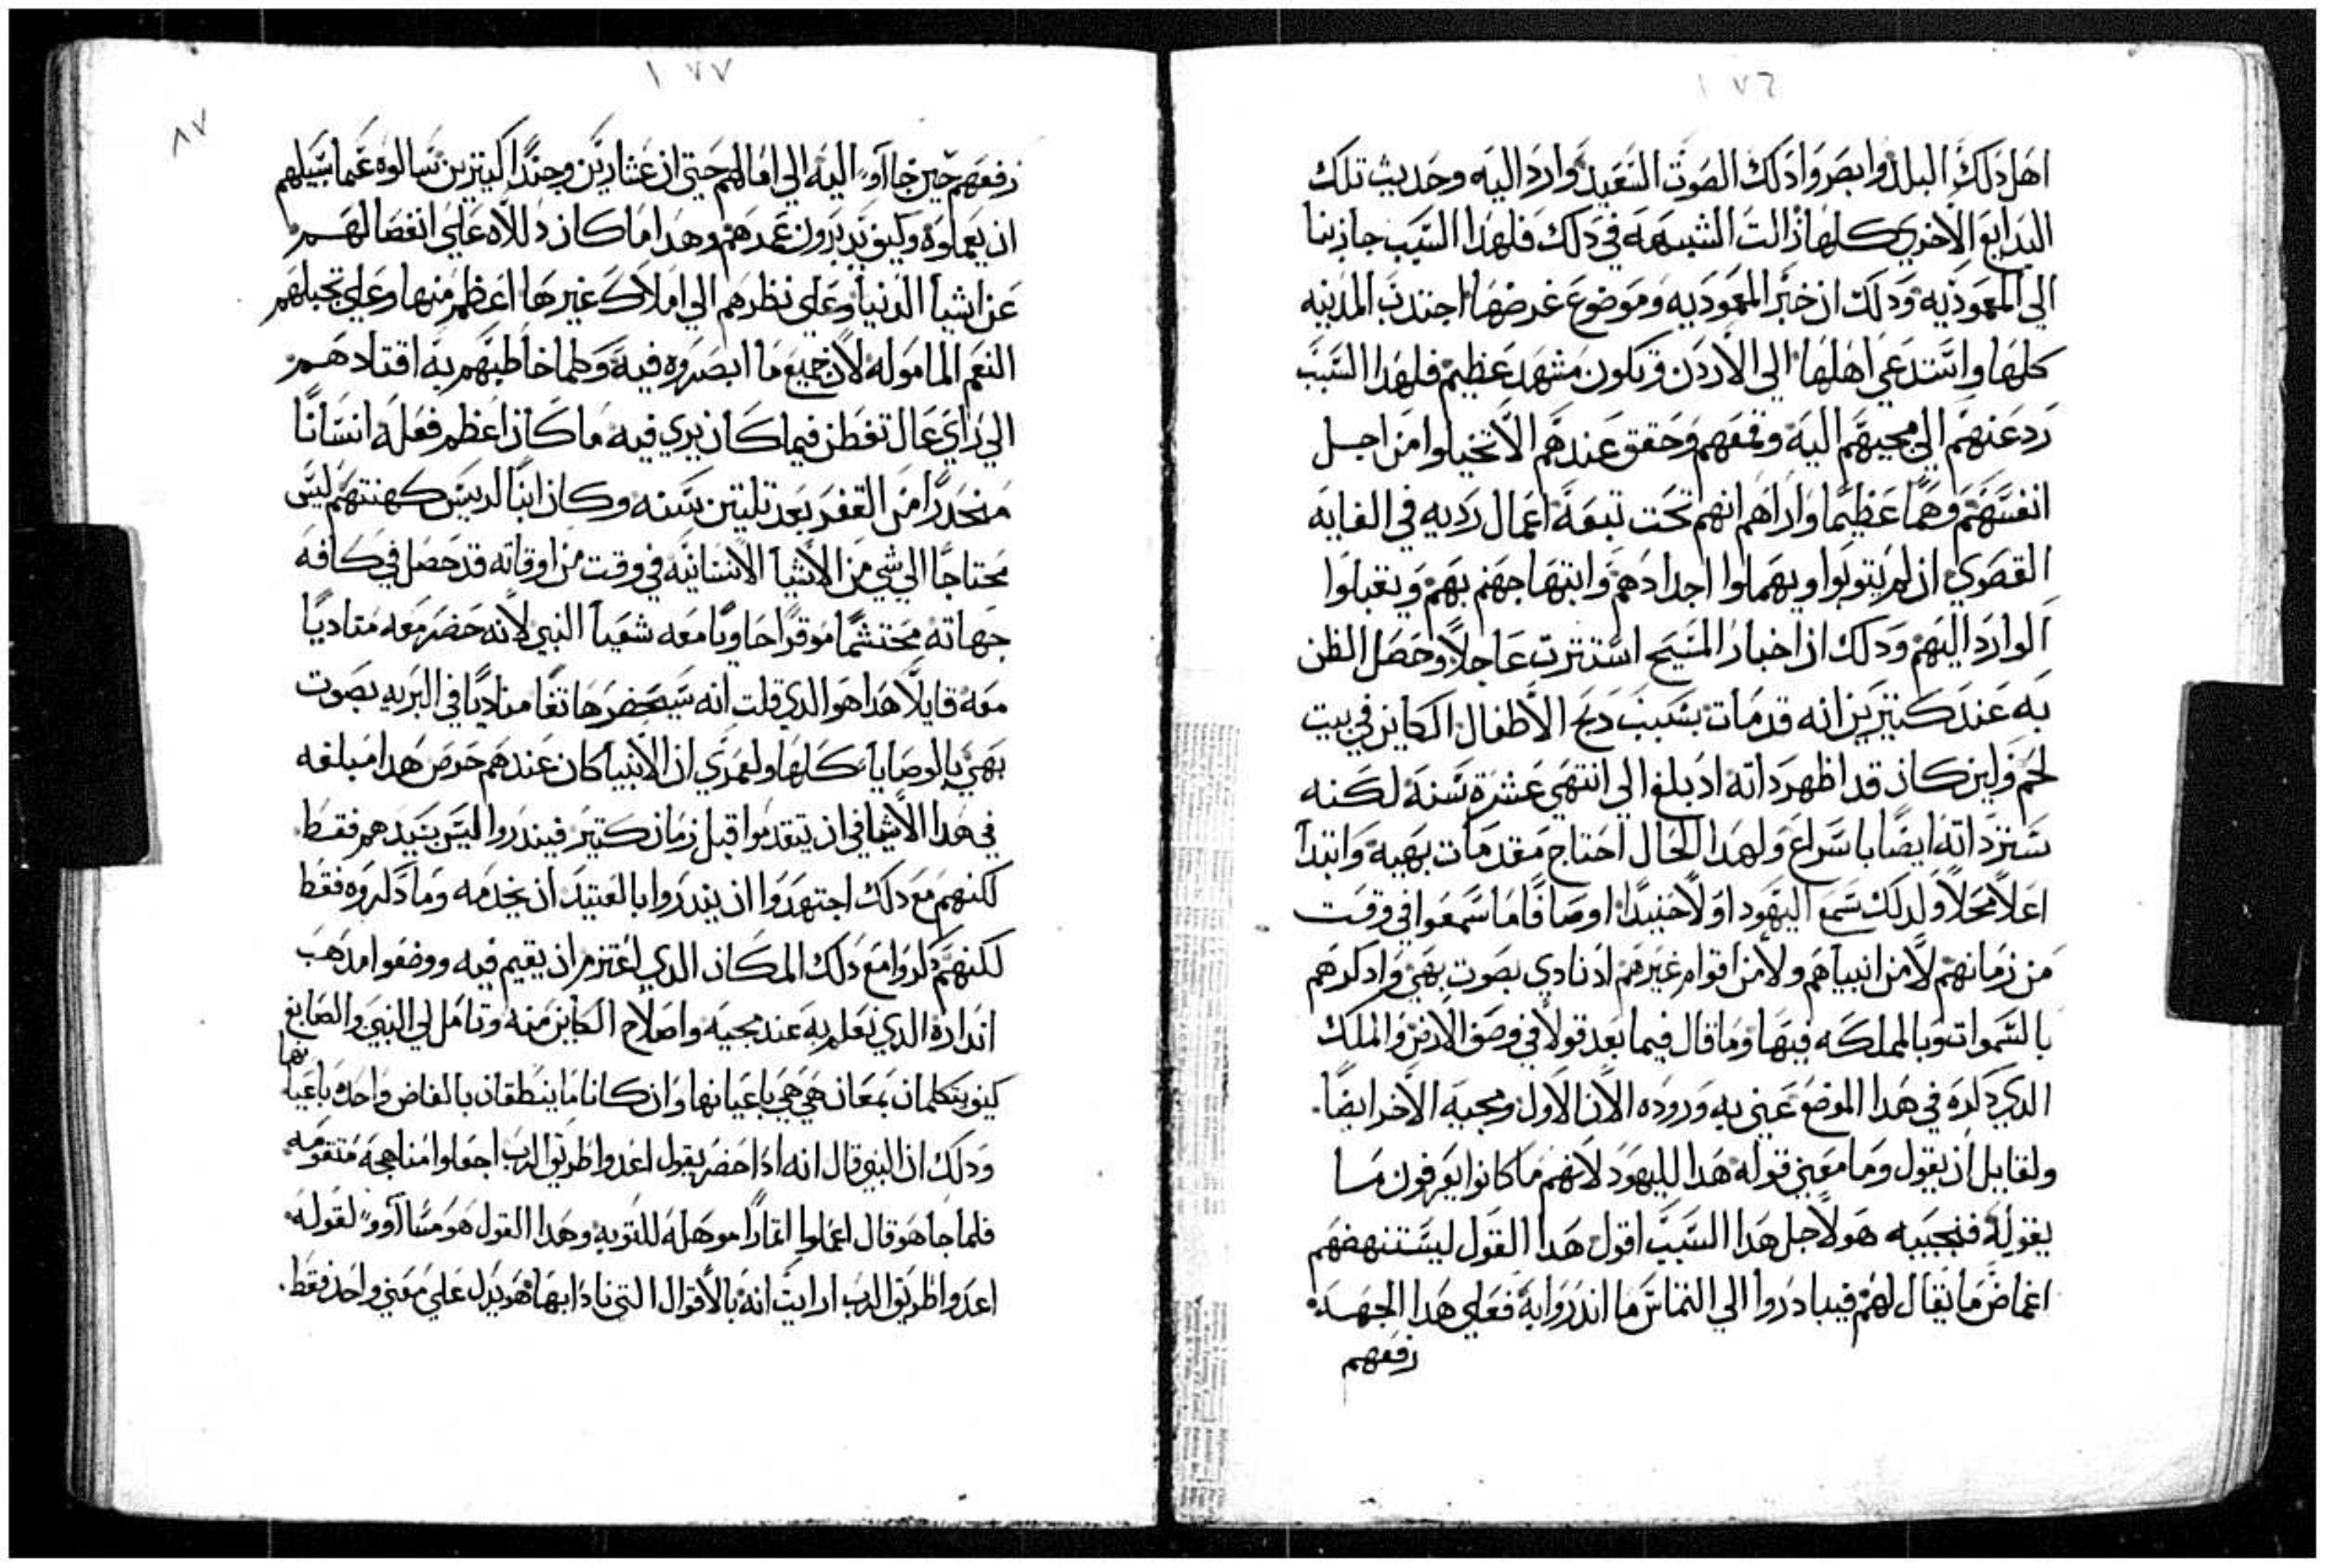 ١٧٦
اهل ذلك البلد وابصروا ذلك الصوت السعيد واردا اليه وحديث تلك
البدايع الاخري كلها زالت الشبهه في ذلك فلهذا السبب جا ذ بنا
الي المعموديه وذلك ان خبر المعموديه وموضوع غرضها اجتذب المدينه
كلها واستدعي اهلها الي الاردن وتكون مشهد عظيم فلهذا السبب
ردعنهم الي مجيهم اليه وقمعهم وحقق عندهم الا تخيلوا من اجل
انفسهم وهما عظيما واراهم انهم تحت تبعة اعمال رديه في الغايه
القصوي ان لم يتوبوا ويهملوا اجدادهم وابتهاجهم بهم ويقبلوا
الوارد اليهم وذلك ان اخبار المسيح استترت عاجلا وحصل الظن
به عند كتيرين انه قد مات بسبب دبح الاطفال الكاين في بيت
لحم ولين كان قد اظهر داته اد بلغ الي انتهي عشرة سنة لكنه
ستر داته ايضا باسراع ولهدا الحال احتاج مقدمات بهيه وابتدا
اعلا محلا ولدلك سمع اليهود اولا حنيدا اوصافا ما سمعوا في وقت
من زمانهم لا من انبياهم ولا من اقوام غيرهم اد نادي بصوت بهي وادكرهم
بالسموات وبالمملكه فيها وما قال فيما بعد قولا في وصف الارض والملك
الدي دكره في هدا الموضع عني به وروده الان الاول ومجيه الاخر ايضا.
ولقايل ان يقول وما معني قوله هدا لليهود لانهم ما كانوا يعرفون ما
يقوله فنجيبه هو لاجل هدا السبب اقول هدا القول ليستنهضهم
اغماض ما يقال لهم فيبادروا الي التماس ما اندروا به فعلي هدا الجهه
رفعهم
١٧٧
٨٧
رفعهم حين جاآوا اليه الي امالهم حتي ان عشارين وجندا كتيرين سالوه عما سبيلهم
ان يعملوه وكيف يدبرون عمرهم وهدا ما كان دلاله علي انفصالهم
عن اشيا الدنيا وعلي نظرهم الي املاك غيرها اعظم منها وعلي تخيلهم
النعم المامولة لان جميع ما ابصروه فيه وكلما خاطبهم به اقتادهم
الي راي عال تفطن فيما كان يري فيه ما كان اعظم فعله انسانا
منحدرا من القفر بعد تلتين سنه وكان ابنا لرييس كهنتهم ليس
محتاجا الي شي من الاشيا الانسانيه في وقت من اوقاته قد حصل في كافه
جهاته محتشما موقرا حاويا معه شعيا النبي لانه حضر معه مناديا
معه قايلا هدا هو الدي قلت انه سيحضر هاتفا مناديا في البريه بصوت
بهي بالوصايا كلها ولعمري ان الانبيا كان عندهم حرص هدا مبلغه
في هدا الاشيا في ان يتقدموا قبل زمان كتير فيندروا ليس بسيدهم فقط
لكنهم مع دلك اجتهدوا ان يندروا بالعتيد ان يخدمه وما دكروه فقط
لكنهم دكروا مع دلك المكان الدي اعتزم ان يقيم فيه ووصفوا مدهب
انداره الدي نعلم به عند مجيه واصلاح الكاين منه وتامل لي النبي والصابغ
كيف يتكلمان بمعان هي هي باعيانها وان كانا ما ينطقان بالفاض واحده باعيانها
ودلك ان النبي قال انه ادا حضر يقول اعدوا طريق الرب اجعلوا مناهجه متقومه
فلما جا هو قال اعملوا اثمارا موهله للتوبه وهدا القول هو مساآوو لقوله
اعدوا طريق الرب ارايت انه بالاقوال التي نادا بها هو يدل علي معني واحد فقط.